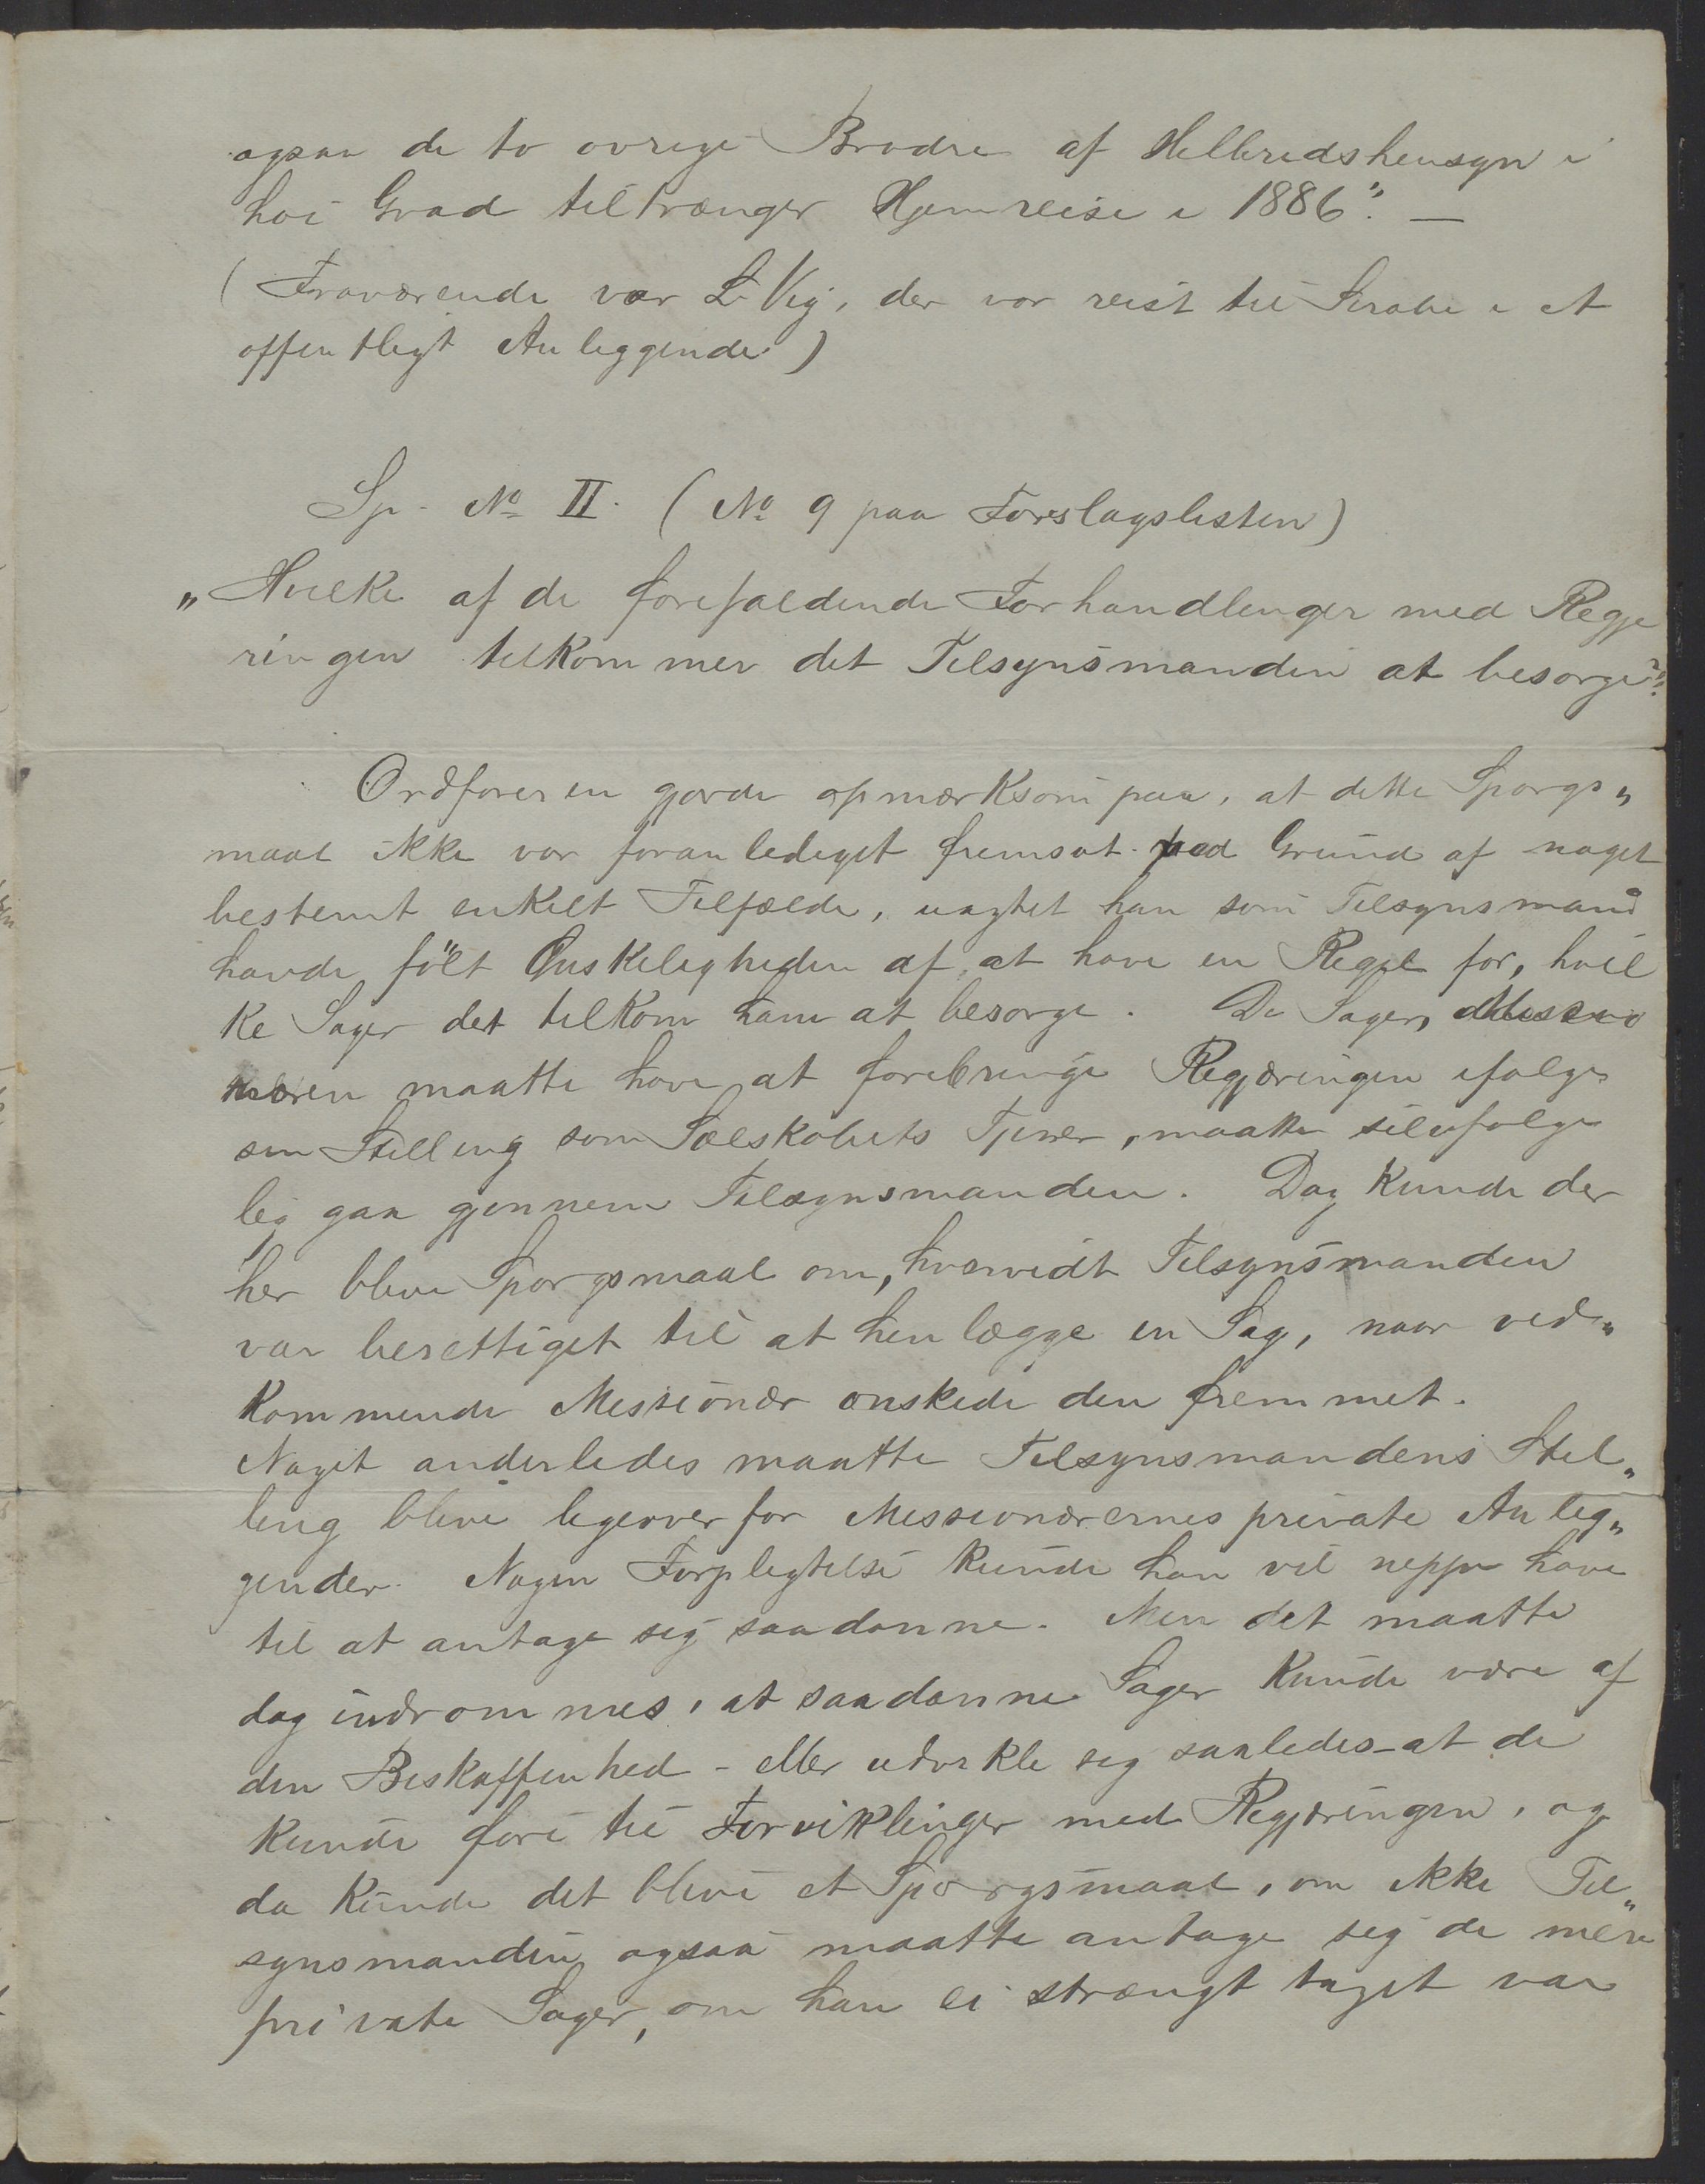 ogsaa de to øvrige Brødre af Helbredshensyn i
høi Grad tiltrænger Hjemreise i 1886". —
(Fraværende var L. Vig, der var reist til Sirabe i et
offentligt Anliggende)
Sp. No II. (No 9 paa Forslagslisten)
„Hvilke af de forefaldende Forhandlinger med Regje
ringen tilkommer det Tilsynsmanden at besørge?"
Ordføreren gjorde opmærksom paa, at dette Spørgs„
maal ikke var foranlediget fremsat paa Grund af noget
bestemt enkelt Tilfælde, uagtet han som Tilsynsmand
havde fölt Ønskeligheden af at have en Regel for, hvil
ke Sager det tilkom ham at besørge. De Sager, Missio
næren maatte have at forebringe Regjæringen ifølge
sin Stilling som Sælskabets Tjener, maatte selvfølge
lig gaa gjennem Tilsynsmanden. Dog kunde der
her blive Spørgsmaal om, hvorvidt Tilsynsmanden
var berettiget til at henlægge en Sag, naar ved„
kommende Missionær ønskede den fremmet.
Noget anderledes maatte Tilsynsmandens Stil„
ling blive ligeoverfor Missionærernes private Anlig„
gender. Nogen Forpligtelse kunde han vel neppe have
til at antage sig saadanne. Men det maatte
dog indrømmes, at saadanne Sager kunde være af
den Beskaffenhed - eller udvikle sig saaledes - at de
kunde føre til Forviklinger med Regjæringen, og
da kunde det blive et Spørgsmaal, om ikke Til„
synsmanden ogsaa maatte antage sig de mere
private Sager, om han ei strængt taget var